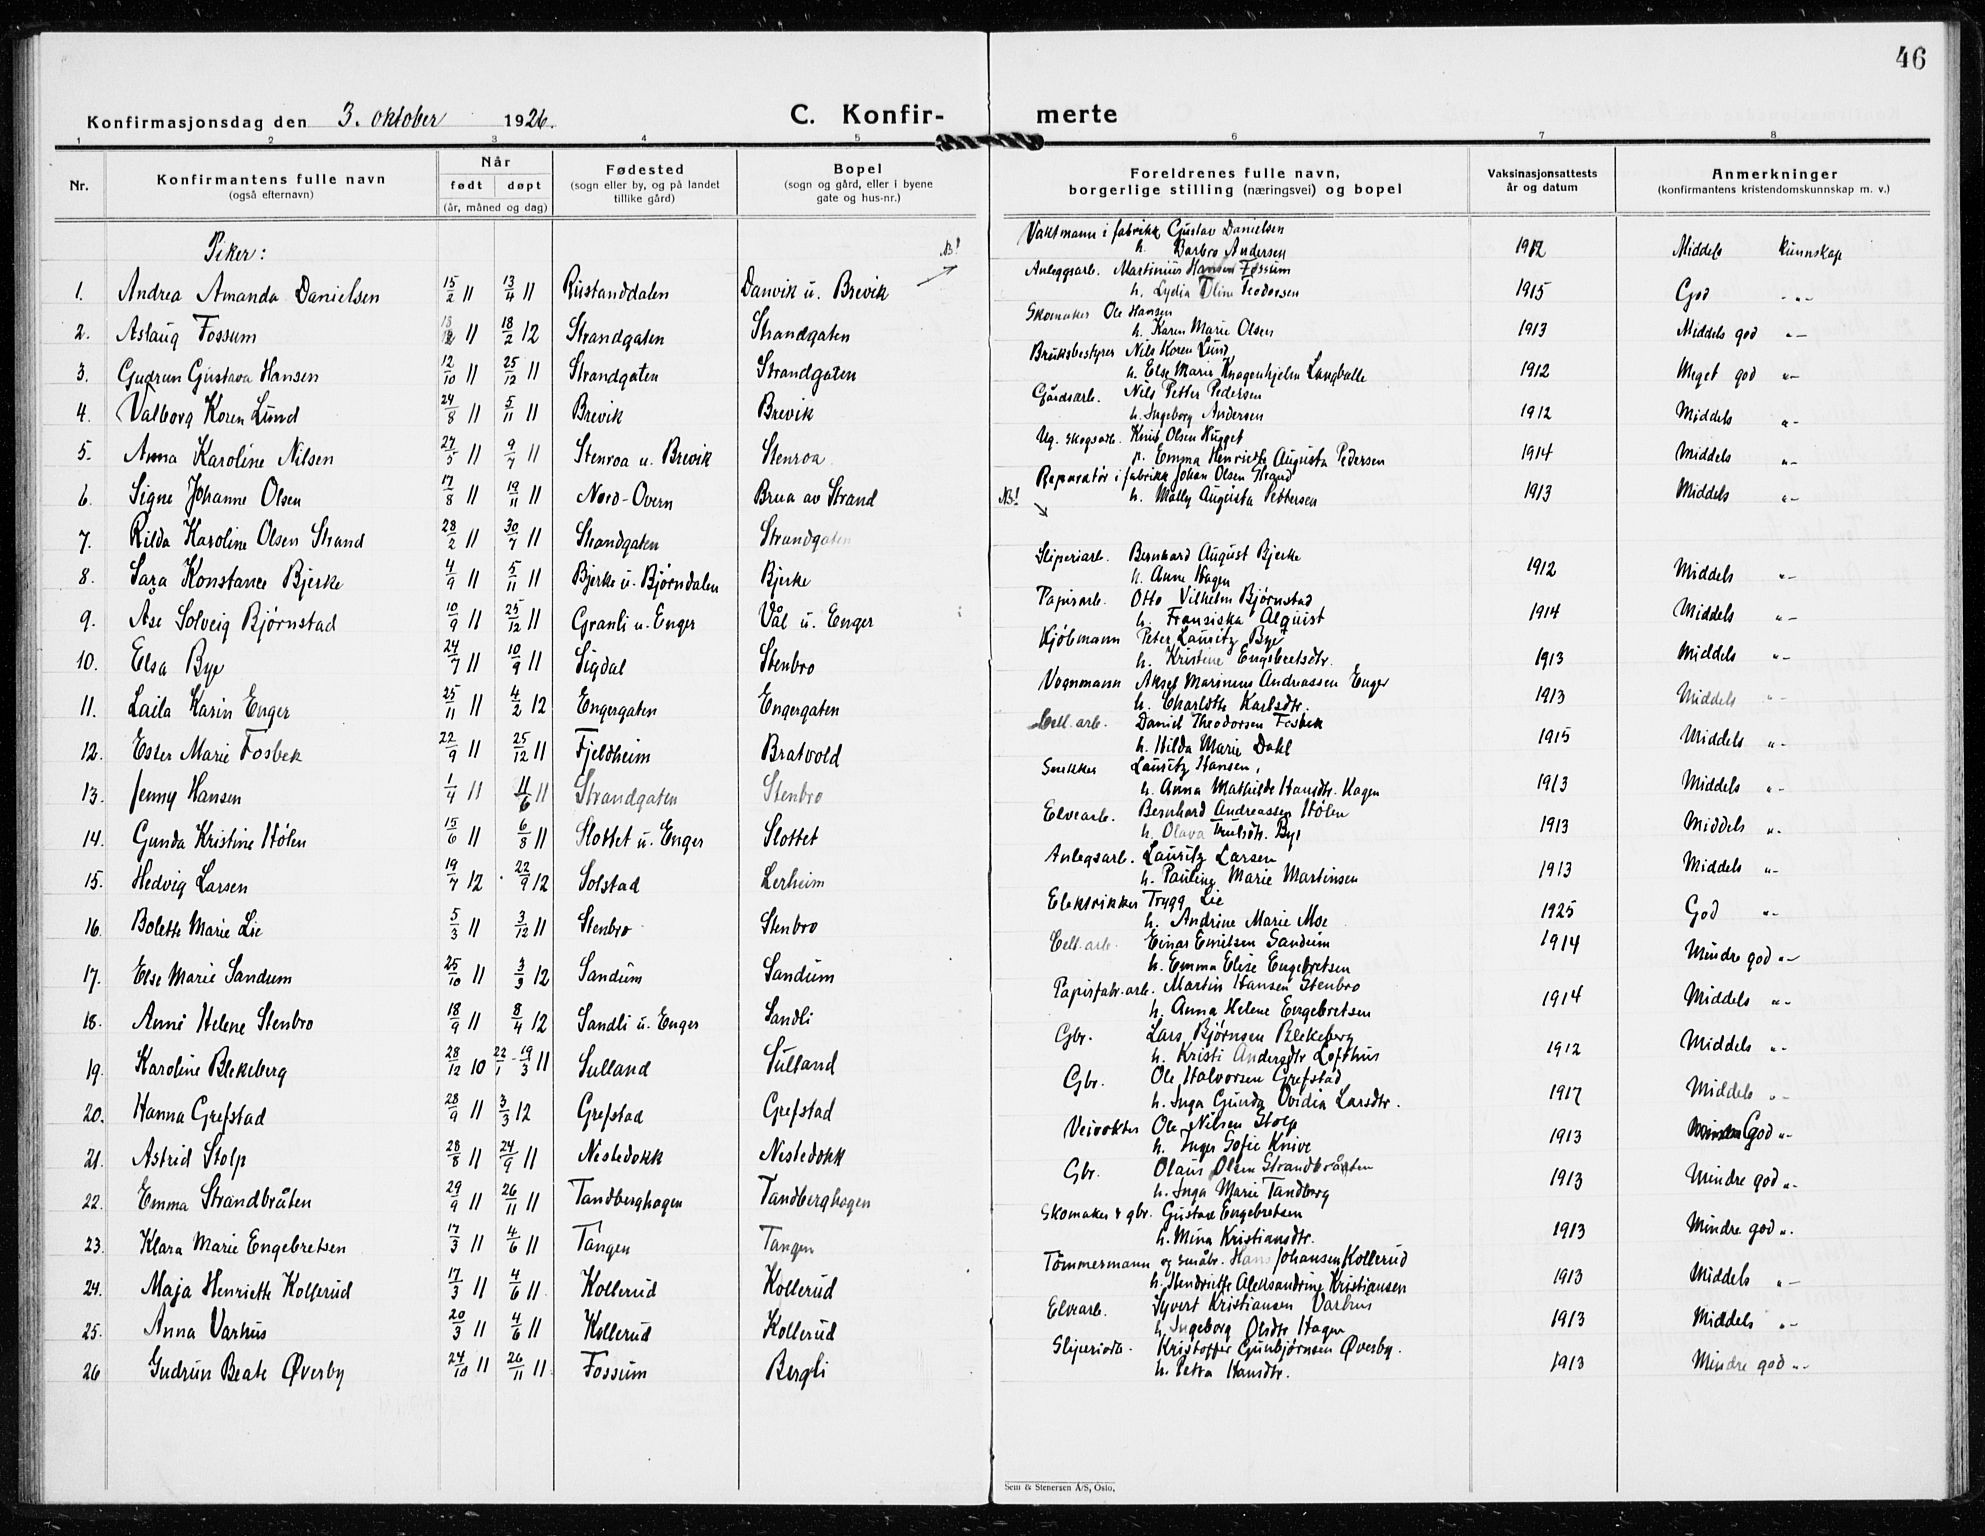 46
Konfirmasjonsdag den 3. oktober 1926.
C. Konfir- merte
1 2 3 4 5 6 7 8
Nr.
Konfirmantens fulle navn
(også efternavn)
Når
født døpt
(år, måned og dag)
Fødested
(sogn eller by, og på landet
tillike gård)
Bopel
(sogn og gård, eller i byene
gate og hus-nr.)
Foreldrenes fulle navn,
borgerlige stilling (næringsvei) og bopel
Vaksinasjonsattests
år og datum
Anmerkninger
(konfirmantens kristendomskunnskap m. v.)
Piker:
NB!
1. Andrea Amanda Danielsen 15/2 11 13/4 11 Rustanddalen Danvik u. Brevik
2. Aslaug Fossum 11 18/2 12 Strandgaten Strandgaten
3. Gudrun Gustava Hansen 12/10 11 25/12 11 Strandgaten Strandgaten
4. Valborg Koren Lund 24/8 11 5/11 11 Brevik Brevik
5. Anna Karoline Nilsen 27/5 11 9/7 11 Stenroa u. Brevik Stenroa
6. Signe Johanne Olsen 17/8 11 19/11 11 Nord-Overn Brua av Strand
7. Rilda Karoline Olsen Strand 28/2 11 30/7 11 Strandgaten Strandgaten
8. Sara Konstance Bjerke 4/9 11 5/11 11 Bjerke u. Bjørndalen Bjerke
9. Åse Solveig Bjørnstad 10/9 11 25/12 11 Granli u. Enger Vål u. Enger
10. Elsa Bye 24/7 11 10/9 11 Sigdal Stenbro
11. Laila Karin Enger 25/11 11 4/2 12 Engergaten Engergaten
12. Ester Marie Fosbek 22/9 11 25/12 11 Fjeldheim Bratvold
13. Jenny Hansen 1/4 11 11/6 11 Strandgaten Stenbro
14. Gunda Kristine Hølen 15/6 11 6/8 11 Slottet u. Enger Slottet
15. Hedvig Larsen 19/7 12 22/9 12 Solstad Lerheim
16. Bolette Marie Lie 5/3 11 3/12 11 Stenbro Stenbro
17. Else Marie Sandum 25/10 11 3/3 12 Sandum Sandum
18. Anni Helene Stenbro 18/9 11 8/4 12 Sandli u. Enger Sandli
19. Karoline Blekeberg 28/12 10 22/1 - 19/3 11 Sulland Sulland
20. Hanna Grefstad 28/9 11 3/3 12 Grefstad Grefstad
21. Astrid Stolp 28/8 11 24/9 11 Nestedokk Nestedokk
22. Emma Strandbråten 29/9 11 26/11 11 Tandberghagen Tandberghagen
23. Klara Marie Engebretsen 17/3 11 4/6 11 Tangen Tangen
24. Maja Henriette Kollerud 17/3 11 4/6 11 Kollerud Kollerud
25. Anna Varhus 20/3 11 4/6 11 Kollerud Kollerud
26 Gudrun Beate Øverby 24/10 11 26/11 11 Fossum Bergli
Vaktmann i fabrikk Gustav Danielsen
h. Barbro Andersen 1912 Middels kunnskap
Anleggsarb. Martinius Hansen Fossum
h. Lydia Oline Teodorsen 1915 God -"-
Skomaker Ole Hansen
h. Karen Marie Olsen 1913 Middels god "-
Bruksbestyrer Nils Koren Lund
h. Else Marie Knagenhjelm Langballe 1912 Meget god "-
Gårdsarb. Nils Petter Pedersen
h. Ingeborg Andersen 1912 Middels "-
Ug. skogsarb. Knut Olsen Hugget
p. Emma Henriette Augusta Pedersen 1914 Middels "-
Reparatør i fabrikk Johan Olsen Strand
NB! h. Molly Augusta Pettersen 1913 Middels "-
Sliperiarb. Bernhard August Bjerke
h. Anne Hagen 1912 Middels "-
Papirarb. Otto Vilhelm Bjørnstad
h. Fransiska Alquist 1914 Middels "-
Kjøbmann Peter Lauritz Bye
h. Kristine Engebretsdtr. 1913 Middels "-
Vognmann Aksel Marinius Andreassen Enger
h. Charlotte Karlsdtr. 1913 Middels "-
Cell. arb. Daniel Theodorsen Fosbek
h. Hilda Marie Dahl 1915 Middels "-
Snekker Lauritz Hansen,
h. Anna Mathilde Hansdtr. Hagen 1913 Middels "-
Elvearb. Bernhard Andreassen Hølen
h. Olava Trulsdtr. Bye 1913 Middels "-
Anlegsarb. Lauritz Larsen
h. Pauline Marie Martinsen 1913 Middels "-
Elektrikker Trygg Lie
h. Andrine Marie Moe 1925 God "-
Cell. arb. Einar Emilsen Sandum
h. Emma Elise Engebretsen 1914 Mindre god "-
Papirfabr. arb. Martin Hansen Stenbro
h. Anna Helene Engebretsen 1914 Middels "-
Gbr. Lars Bjørnsen Blekeberg
h. Kristi Andersdtr Lofthus 1912 Middels "-
Gbr. Ole Halvorsen Grefstad
h. Inga Gunda Ovidia Larsdtr. 1917 Middels "-
Veivokter Ole Nilsen Stolp
h. Inger Sofie Knive 1913 God "-
Gbr. Olaus Olsen Strandbråten
h. Inga Marie Tandberg 1913 Mindre god "-
Skomaker & gbr. Gustav Engebretsen
h. Mina Kristiansdtr. 1913 Mindre god "-
Tømmermann og småbr. Hans Johansen Kollerud
h. Hendriette Aleksandrine Kristiansen 1913 Middels "-
Elvearb. Syvert Kristiansen Varhus
h. Ingeborg Olsdtr Hagen 1913 Middels "-
Sliperiarb. Kristoffer Gunbjørnsen Øverby.
h. Petra Hansdtr. 1913 Mindre god "-
Sem & Stenersen A/S, Oslo.